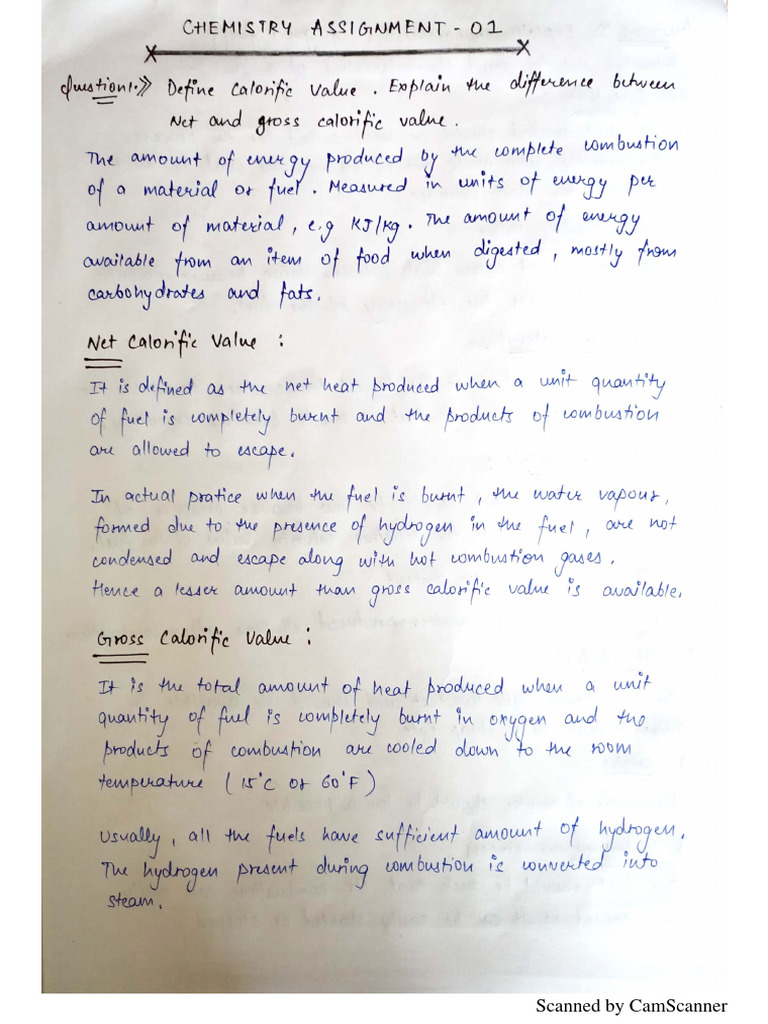 CHEMISTRY ASSIGNMENT - 01
Question1.>> Define Calorific Value. Explain the difference between
Net and gross calorific value.
The amount of energy produced by the complete combustion
of a material or fuel. Measured in units of energy per
amount of material, e.g KJ/Kg. The amount of energy
available from an item of food when digested, mostly from
carbohydrates and fats.
Net Calorific Value :
It is defined as the net heat produced when a unit quantity
of fuel is completely burnt and the products of combustion
are allowed to escape.
In actual pratice when the fuel is burnt, the water vapour,
formed due to the presence of hydrogen in the fuel, are not
condensed and escape along with hot combustion gases.
Hence a lesser amount than gross calorific value is available.
Gross Calorific Value :
It is the total amount of heat produced when a unit
quantity of fuel is completely burnt in oxygen and the
products of combustion are cooled down to the room
temperature (15°C or 60°F)
Usually, all the fuels have sufficient amount of hydrogen.
The hydrogen present during combustion is converted into
steam.
Scanned by CamScanner